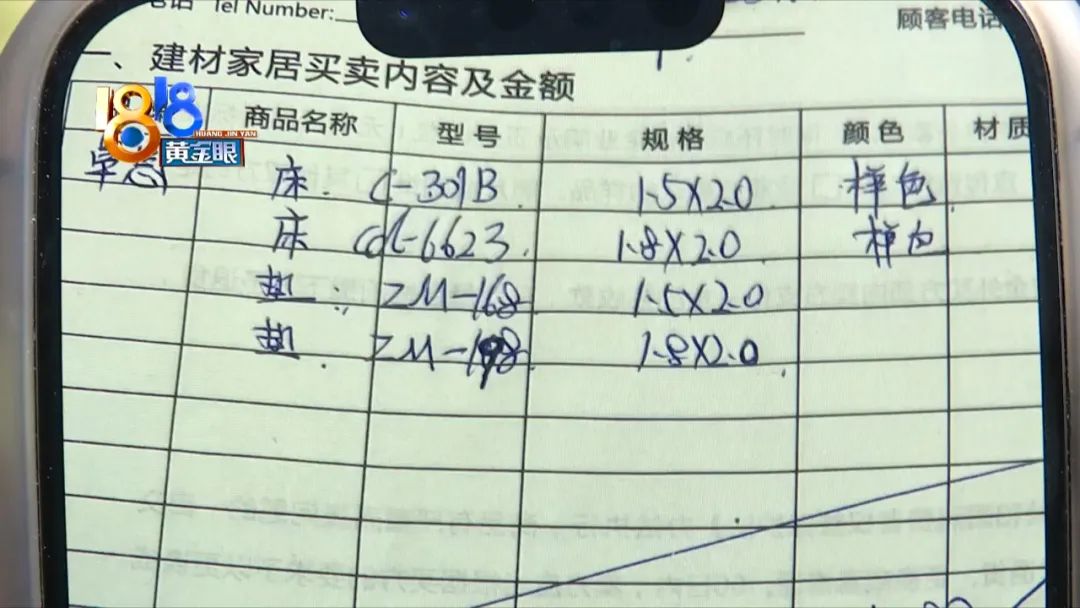 Tel Number:
顾客电话
一、建材家居买卖内容及金额
1818
HUANG JIN YAN
黄金眼
商品名称 型号 规格 颜色 材质
床 C-309B 1.5X2.0 样色
床 cdl-6623 1.8X2.0 样色
垫 ZM-168 1.5X2.0
垫 ZM-198 1.8X2.0